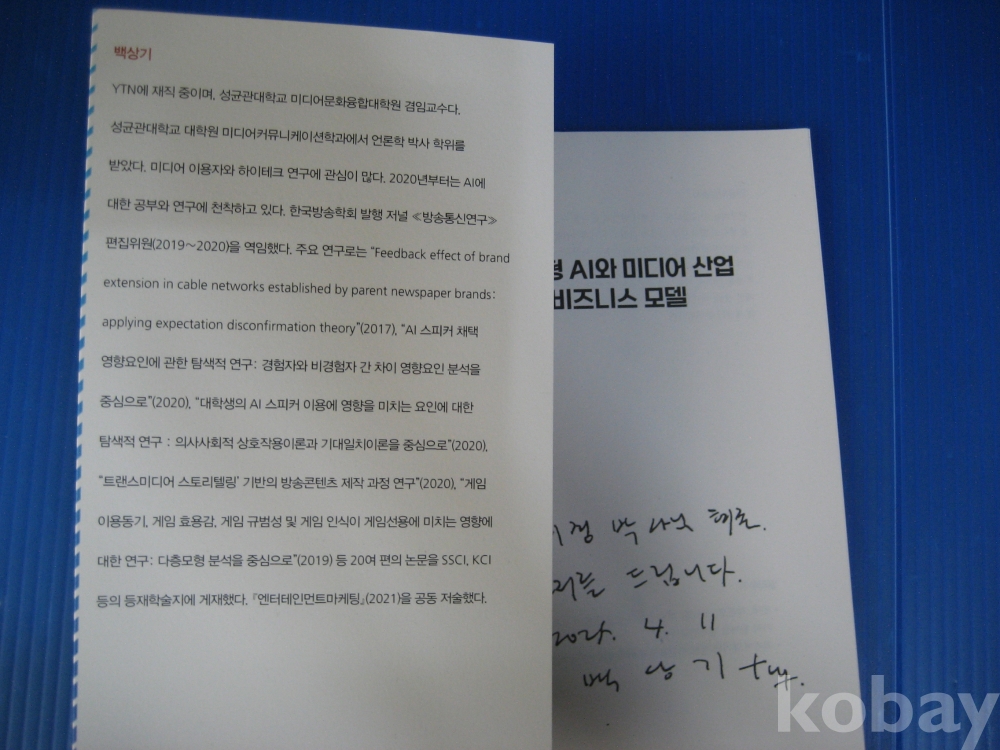 백상기
YTN에 재직 중이며, 성균관대학교 미디어문화융합대학원 겸임교수다.
성균관대학교 대학원 미디어커뮤니케이션학과에서 언론학 박사 학위를
받았다. 미디어 이용자와 하이테크 연구에 관심이 많다. 2020년부터는 AI에
대한 공부와 연구에 천착하고 있다. 한국방송학회 발행 저널 ≪방송통신연구≫
편집위원(2019～2020)을 역임했다. 주요 연구로는 “Feedback effect of brand
extension in cable networks established by parent newspaper brands:
applying expectation disconfirmation theory”(2017), “AI 스피커 채택
영향요인에 관한 탐색적 연구: 경험자와 비경험자 간 차이 영향요인 분석을
중심으로”(2020), “대학생의 AI 스피커 이용에 영향을 미치는 요인에 대한
탐색적 연구 : 의사사회적 상호작용이론과 기대일치이론을 중심으로”(2020),
“트랜스미디어 스토리텔링’ 기반의 방송콘텐츠 제작 과정 연구”(2020), “게임
이용동기, 게임 효용감, 게임 규범성 및 게임 인식이 게임선용에 미치는 영향에
대한 연구: 다층모형 분석을 중심으로”(2019) 등 20여 편의 논문을 SSCI, KCI
등의 등재학술지에 게재했다. 『엔터테인먼트마케팅』(2021)을 공동 저술했다.
형 AI와 미디어 산업
비즈니스 모델
박
드립니다.
4. 11
백상기
kobay